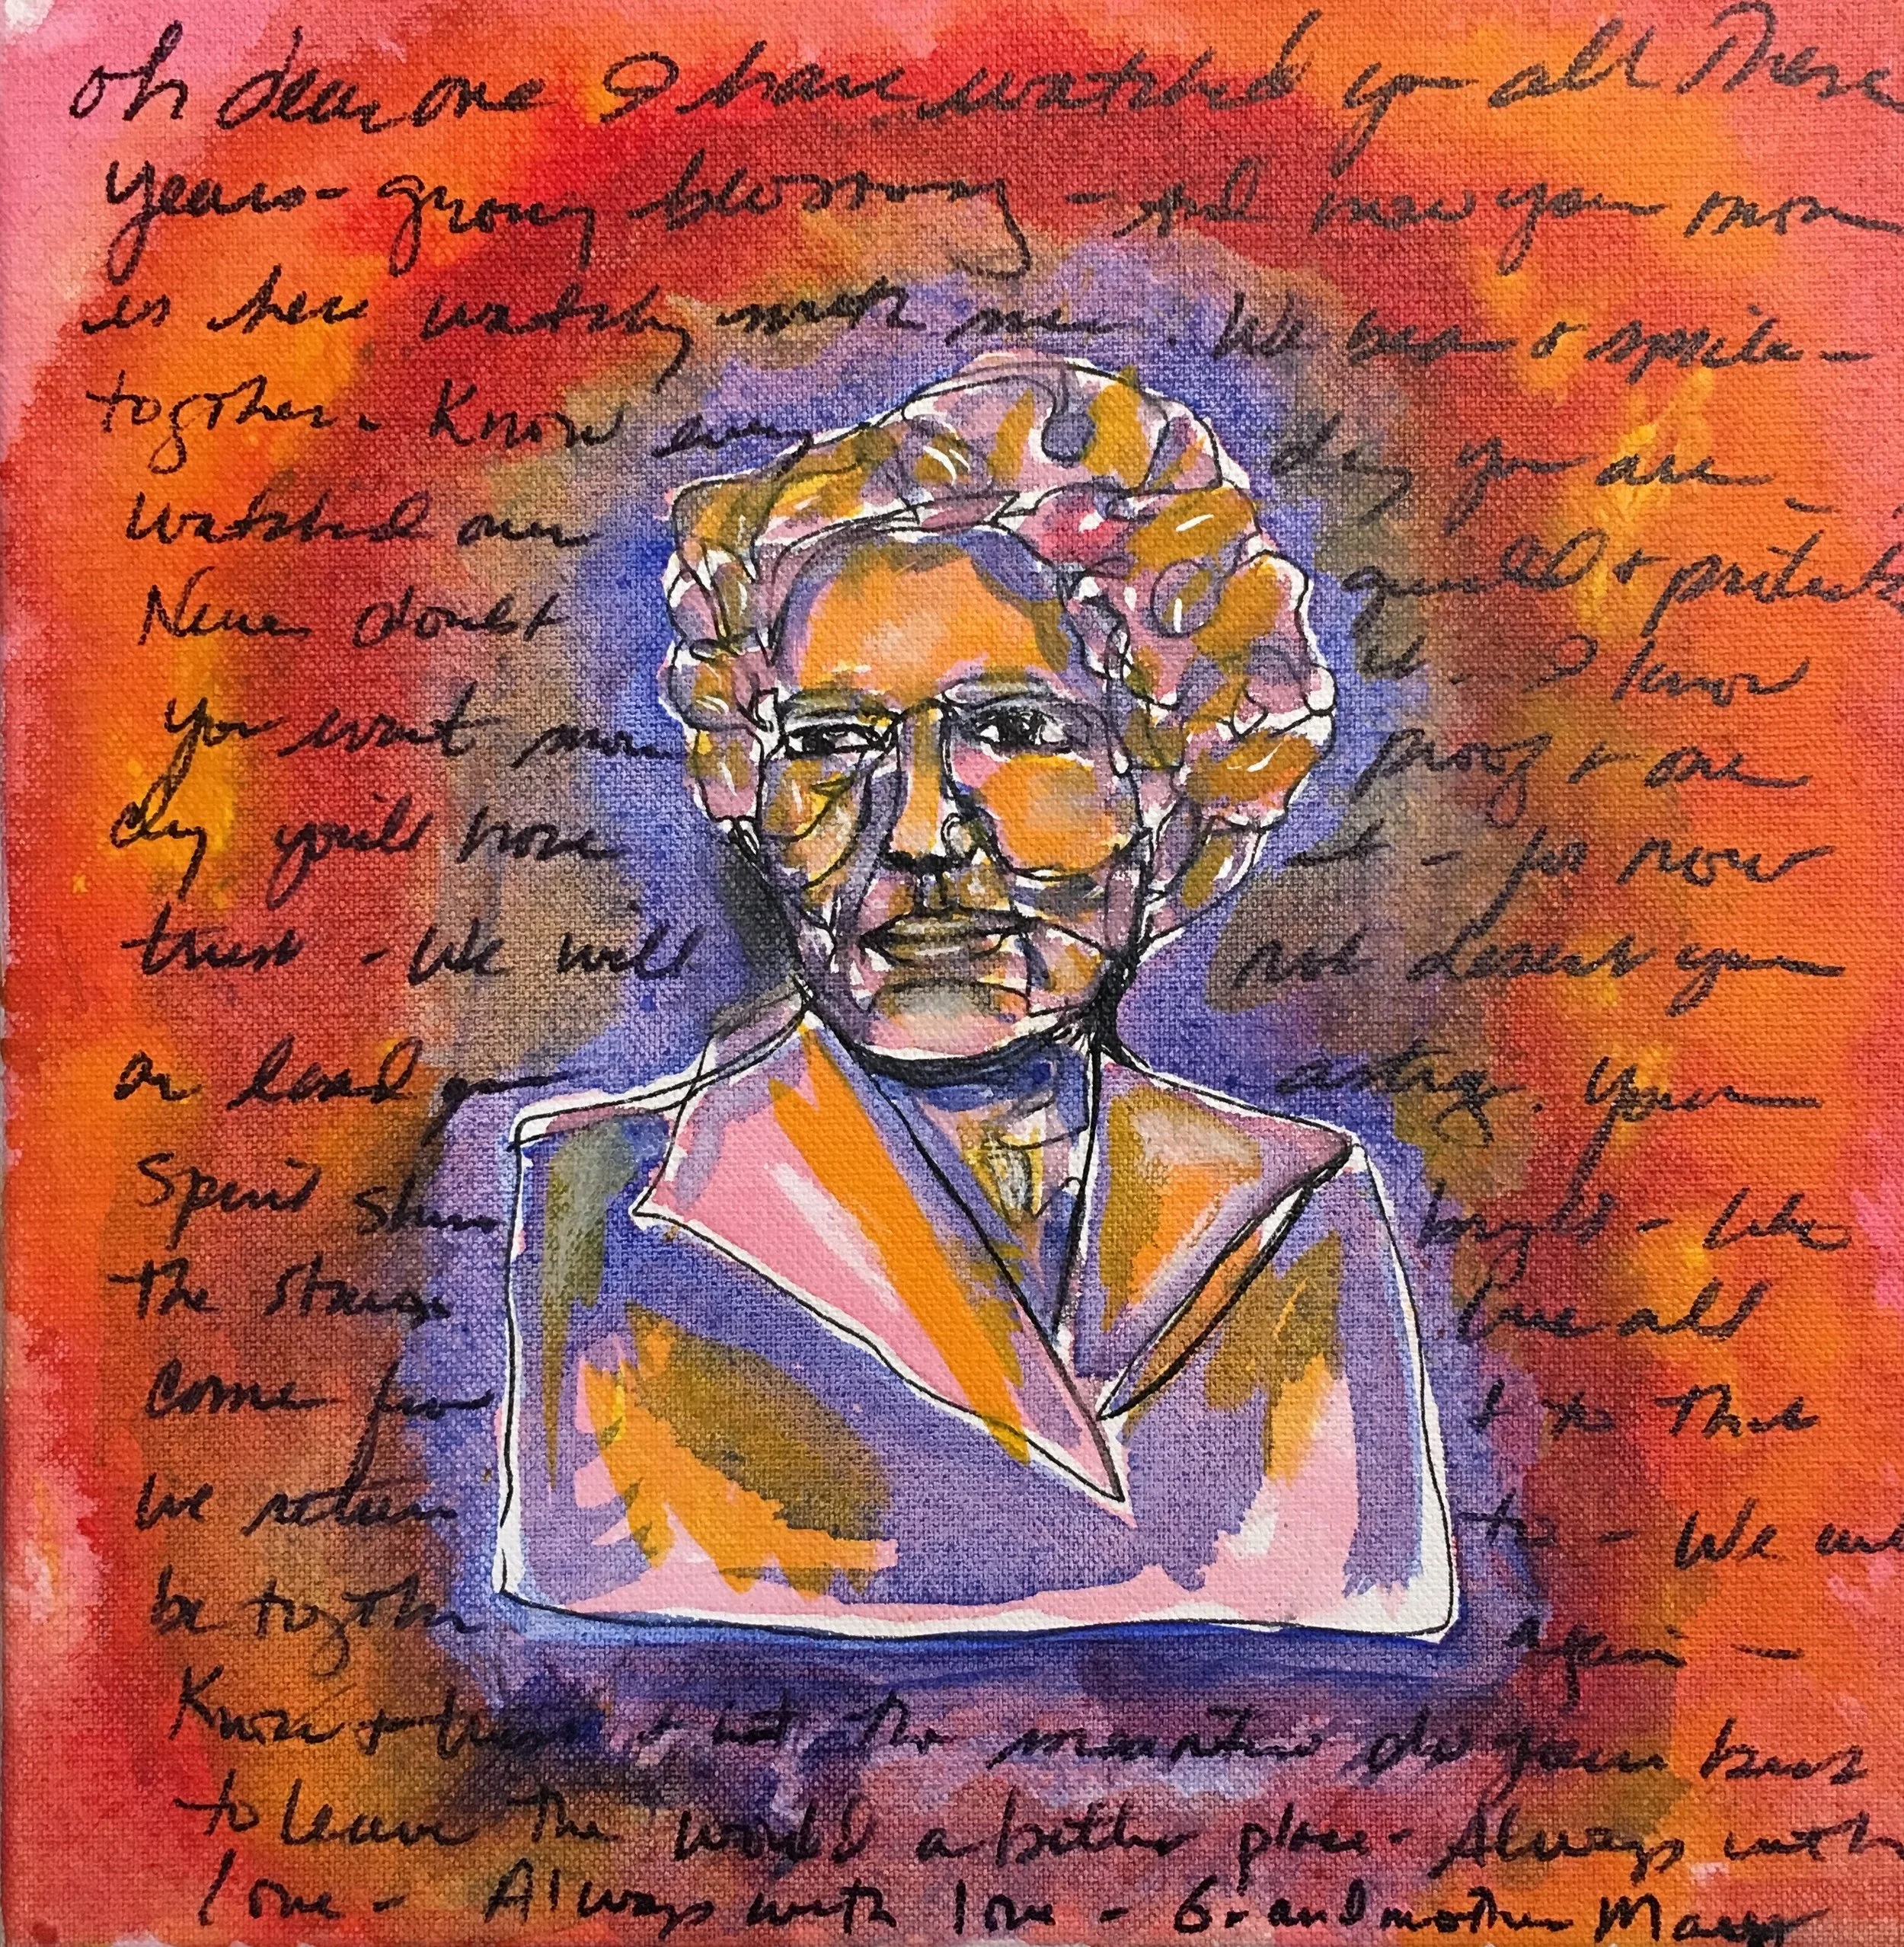 oh dear one I have watched you all These
years - growing blossoming - And now your mom
is here watching with me. We beam & smile -
together. Know every day you are
watched over guided & protected
Never doubt it. I know
you want more proof & one
day you'll have it - for now
trust - We will not desert you
or lead you astray. Your
Spirit shines bright - like
the stars we all
come from & to that
we return to - We will
be together again -
Know & trust that the mantra do your best
to leave the world a better place - Always with
love - Always with love - Grandmother Mary